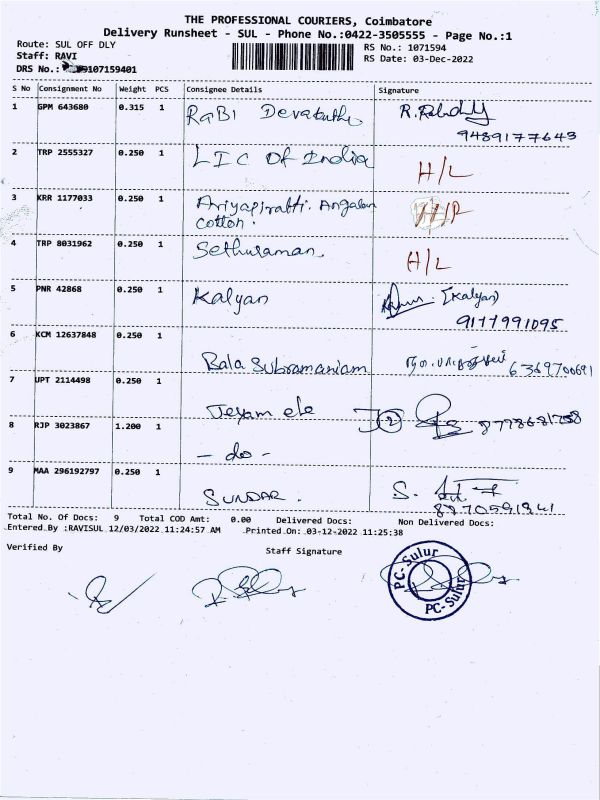 THE PROFESSIONAL COURIERS, Coimbatore
Delivery Runsheet - SUL - Phone No.:0422-3505555 - Page No.:1
Route: SUL OFF DLY
RS No.: 1071594
Staff: RAVI
RS Date: 03-Dec-2022
DRS No.: 107159401
S No Consignment No Weight PCS Consignee Details Signature
1 GPM 643680 0.315 1 RaBI Devakuthi
9489177643
2 TRP 2555327 0.250 1 LIC Of India H/L
3 KRR 1177033 0.250 1 Ariyapiratti. Angalan
cotton.
4 TRP 8031962 0.250 1 Sethuraman H/L
5 PNR 42868 0.250 1 Kalyan (Kalyan)
9177991095
6 KCM 12637848 0.250 1 Bala Subramaniam 6369700691
7 UPT 2114498 0.250 1 Jeyam ele
8 RJP 3023867 1.200 1 - do - 2
9 MAA 296192797 0.250 1 SUNDAR. S.
Total No. Of Docs: 9 Total COD Amt: 0.00 Delivered Docs: Non Delivered Docs:
Entered By :RAVISUL 12/03/2022 11:24:57 AM Printed On: 03-12-2022 11:25:38
Verified By Staff Signature
PC-Sulur
PC-Sulur